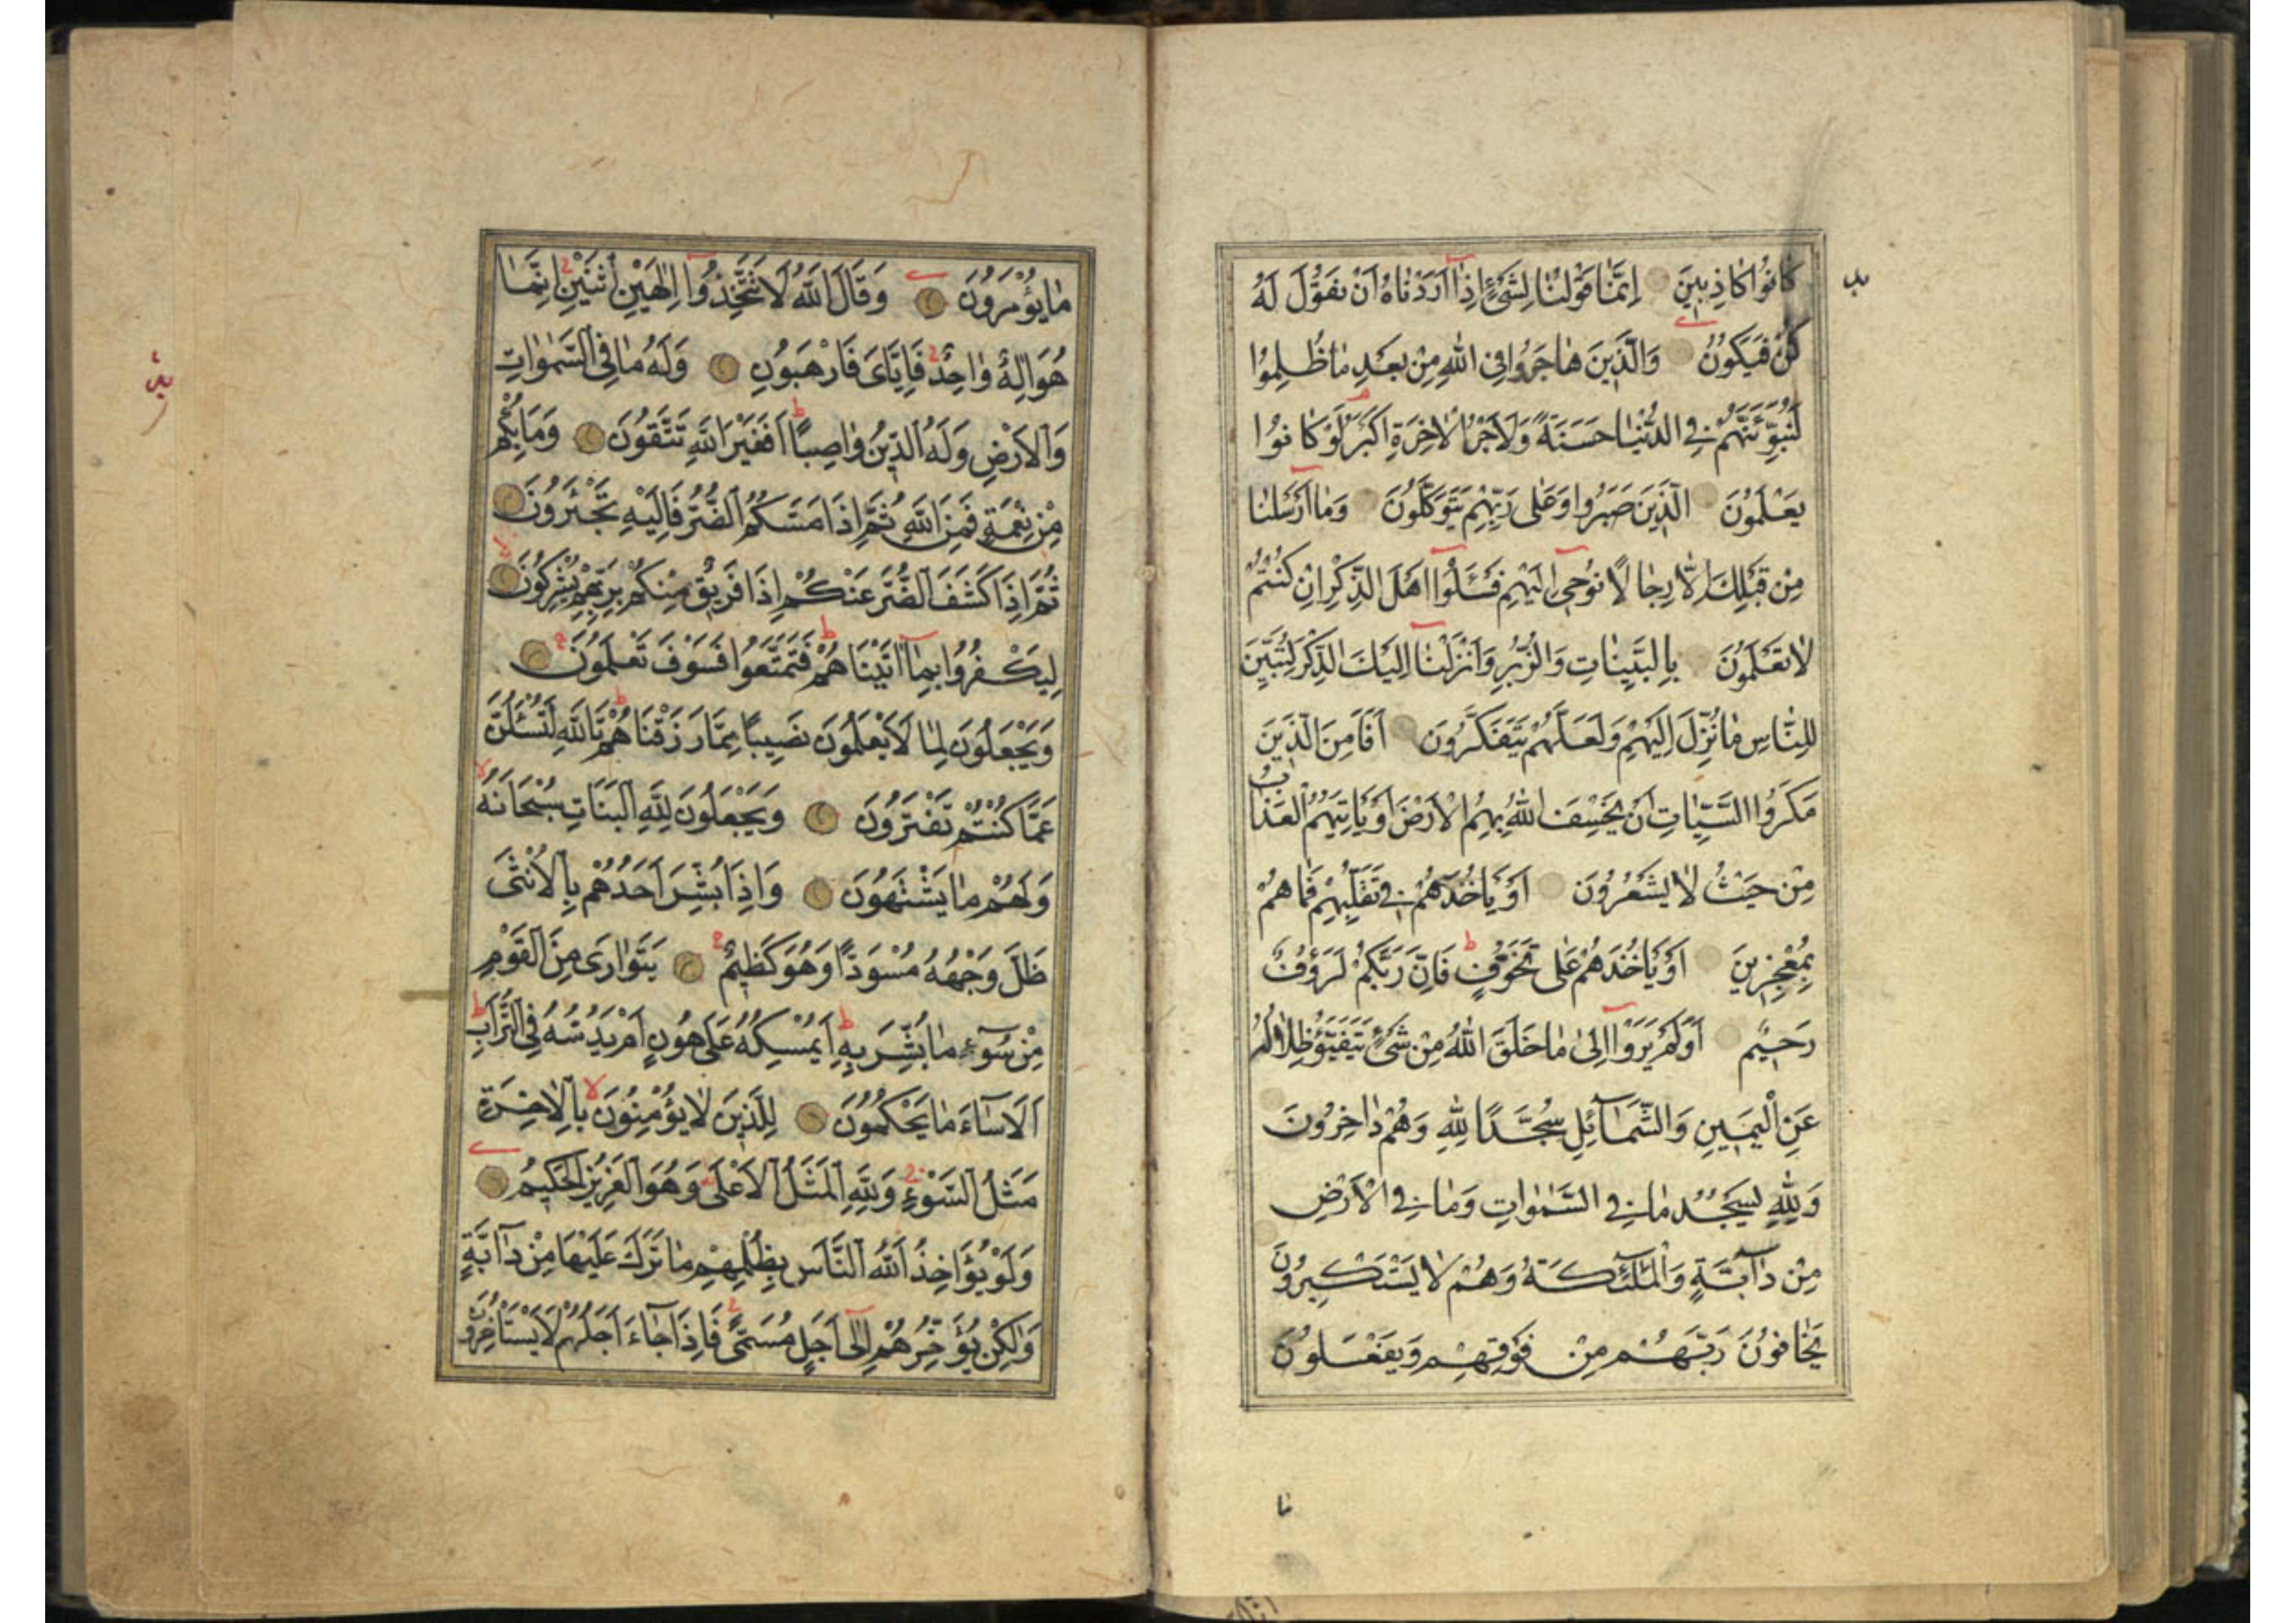 كَانُوا كَاذِبِينَ اِنَّمَا قَوْلُنَا لِشَیْءٍ اِذَٓا اَرَدْنَاهُ اَنْ نَقُولَ لَهُ
كُنْ فَيَكُونُ وَالَّذِينَ هَاجَرُوا فِى اللّٰهِ مِنْ بَعْدِ مَا ظُلِمُوا
لَنُبَوِّئَنَّهُمْ فِى الدُّنْيَا حَسَنَةً وَلَاَجْرُ الْاٰخِرَةِ اَكْبَرُ لَوْ كَانُوا
يَعْلَمُونَ الَّذِينَ صَبَرُوا وَعَلٰى رَبِّهِمْ يَتَوَكَّلُونَ وَمَٓا اَرْسَلْنَا
مِنْ قَبْلِكَ اِلَّا رِجَالًا نُوحِٓى اِلَيْهِمْ فَسْـَٔلُٓوا اَهْلَ الذِّكْرِ اِنْ كُنْتُمْ
لَا تَعْلَمُونَ بِالْبَيِّنَاتِ وَالزُّبُرِ وَاَنْزَلْنَٓا اِلَيْكَ الذِّكْرَ لِتُبَيِّنَ
لِلنَّاسِ مَا نُزِّلَ اِلَيْهِمْ وَلَعَلَّهُمْ يَتَفَكَّرُونَ اَفَاَمِنَ الَّذِينَ
مَكَرُوا السَّيِّاٰتِ اَنْ يَخْسِفَ اللّٰهُ بِهِمُ الْاَرْضَ اَوْ يَاْتِيَهُمُ الْعَذَابُ
مِنْ حَيْثُ لَا يَشْعُرُونَ اَوْ يَاْخُذَهُمْ فِى تَقَلُّبِهِمْ فَمَا هُمْ
بِمُعْجِزِينَ اَوْ يَاْخُذَهُمْ عَلٰى تَخَوُّفٍ فَاِنَّ رَبَّكُمْ لَرَؤُفٌ
رَحِيمٌ اَوَلَمْ يَرَوْا اِلٰى مَا خَلَقَ اللّٰهُ مِنْ شَیْءٍ يَتَفَيَّؤُ ظِلَالُهُ
عَنِ الْيَمِينِ وَالشَّمَٓائِلِ سُجَّدًا لِلّٰهِ وَهُمْ دَاخِرُونَ
وَلِلّٰهِ يَسْجُدُ مَا فِى السَّمٰوَاتِ وَمَا فِى الْاَرْضِ
مِنْ دَٓابَّةٍ وَالْمَلٰٓئِكَةُ وَهُمْ لَا يَسْتَكْبِرُونَ
يَخَافُونَ رَبَّهُمْ مِنْ فَوْقِهِمْ وَيَفْعَلُونَ
مَا يُؤْمَرُونَ وَقَالَ اللّٰهُ لَا تَتَّخِذُٓوا اِلٰهَيْنِ اثْنَيْنِ اِنَّمَا
هُوَ اِلٰهٌ وَاحِدٌ فَاِيَّاىَ فَارْهَبُونِ وَلَهُ مَا فِى السَّمٰوَاتِ
وَالْاَرْضِ وَلَهُ الدِّينُ وَاصِبًا اَفَغَيْرَ اللّٰهِ تَتَّقُونَ وَمَا بِكُمْ
مِنْ نِعْمَةٍ فَمِنَ اللّٰهِ ثُمَّ اِذَا مَسَّكُمُ الضُّرُّ فَاِلَيْهِ تَجْـَٔرُونَ
ثُمَّ اِذَا كَشَفَ الضُّرَّ عَنْكُمْ اِذَا فَرِيقٌ مِنْكُمْ بِرَبِّهِمْ يُشْرِكُونَ
لِيَكْفُرُوا بِمَٓا اٰتَيْنَاهُمْ فَتَمَتَّعُوا فَسَوْفَ تَعْلَمُونَ
وَيَجْعَلُونَ لِمَا لَا يَعْلَمُونَ نَصِيبًا مِمَّا رَزَقْنَاهُمْ تَاللّٰهِ لَتُسْـَٔلُنَّ
عَمَّا كُنْتُمْ تَفْتَرُونَ وَيَجْعَلُونَ لِلّٰهِ الْبَنَاتِ سُبْحَانَهُ
وَلَهُمْ مَا يَشْتَهُونَ وَاِذَا بُشِّرَ اَحَدُهُمْ بِالْاُنْثٰى
ظَلَّ وَجْهُهُ مُسْوَدًّا وَهُوَ كَظِيمٌ يَتَوَارٰى مِنَ الْقَوْمِ
مِنْ سُوٓءِ مَا بُشِّرَ بِهِ اَيُمْسِكُهُ عَلٰى هُونٍ اَمْ يَدُسُّهُ فِى التُّرَابِ
اَلَا سَٓاءَ مَا يَحْكُمُونَ لِلَّذِينَ لَا يُؤْمِنُونَ بِالْاٰخِرَةِ
مَثَلُ السَّوْءِ وَلِلّٰهِ الْمَثَلُ الْاَعْلٰى وَهُوَ الْعَزِيزُ الْحَكِيمُ
وَلَوْ يُؤَاخِذُ اللّٰهُ النَّاسَ بِظُلْمِهِمْ مَا تَرَكَ عَلَيْهَا مِنْ دَٓابَّةٍ
وَلٰكِنْ يُؤَخِّرُهُمْ اِلٰٓى اَجَلٍ مُسَمًّى فَاِذَا جَٓاءَ اَجَلُهُمْ لَا يَسْتَاْخِرُونَ